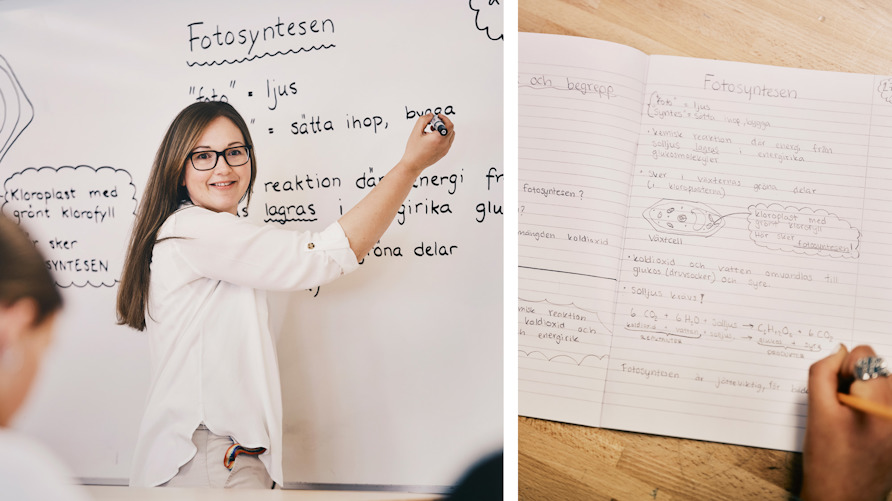 Fotosyntesen
"foto" = ljus
" = sätta ihop, bygga
reaktion där energi fr
lagras i energirika glu
gröna delar
Kloroplast med
grönt klorofyll
är sker
SYNTESEN
och begrepp
Fotosyntesen?
mängden koldioxid
misk reaktion
koldioxid och
energirik
Fotosyntesen
"foto" = ljus
"syntes" = sätta ihop, bygga
• kemisk reaktion där energi från
solljus lagras i energirika
glukosmolekyler
• sker i växternas gröna delar
(i kloroplasterna)
Växtcell
kloroplast med
grönt klorofyll
Här sker
fotosyntesen!
• koldioxid och vatten omvandlas till
glukos (druvsocker) och syre.
• solljus krävs!
6 CO₂ + 6 H₂O + solljus → C₆H₁₂O₆ + 6 CO₂
koldioxid + vatten + solljus → glukos + syre
Fotosyntesen är jätteviktig, för